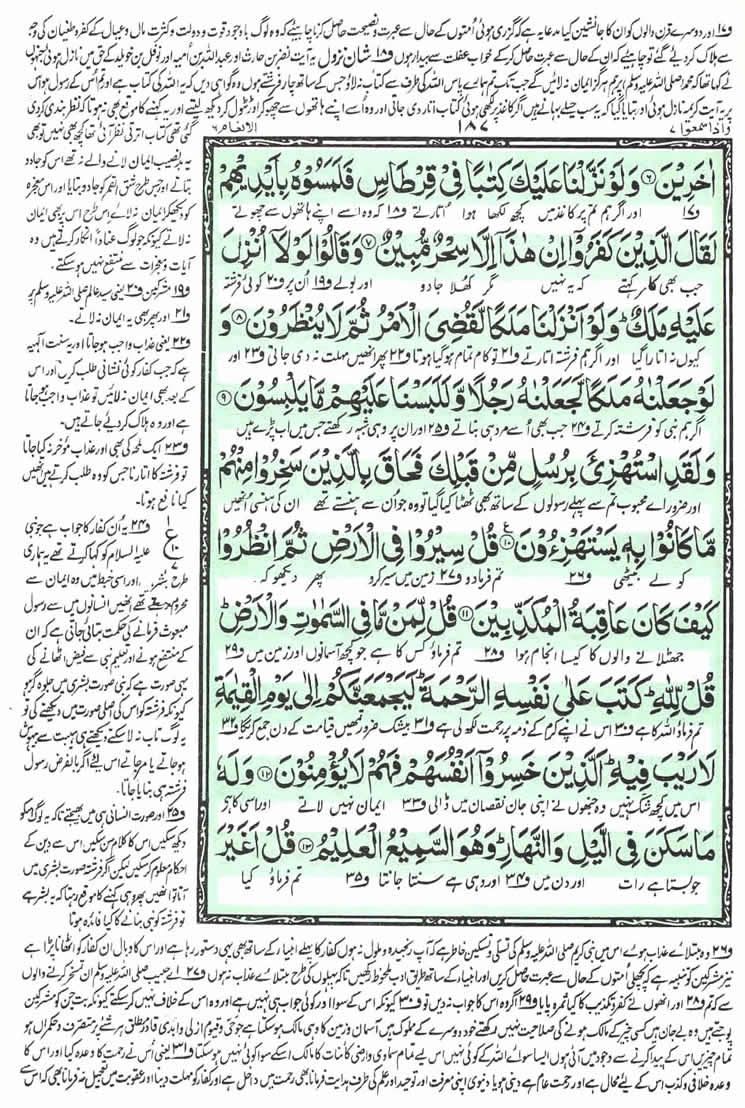 و۱۷ اور دوسرے قرن والوں کو ان کا جانشین کیا مدعا یہ ہے کہ گزری ہوئی اُمتوں کے حال سے عبرت و نصیحت حاصل کرنا چاہئے کہ وہ لوگ باوجود قوت و دولت و کثرت مال و عیال کے کفر و طغیان کی وجہ
سے ہلاک کر دیئے گئے تو چاہئے کہ ان کے حال سے عبرت حاصل کر کے خواب غفلت سے بیدار ہوں و۱۸ شان نزول یہ آیت نضر بن حارث اور عبداللہ بن اُمیہ اور نوفل بن خویلد کے حق میں نازل ہوئی جنہوں
نے کہا تھا کہ محمد صلی اللہ علیہ وسلم پر ہم ہرگز ایمان نہ لائیں گے جب تک تم ہمارے پاس اللہ کی طرف سے کتاب نہ لاؤ جس کے ساتھ چار فرشتے ہوں وہ گواہی دیں کہ یہ اللہ کی کتاب ہے اور تم اُس کے رسول ہو اس
پر یہ آیت کریمہ نازل ہوئی اور بتایا گیا کہ یہ سب حیلے بہانے ہیں اگر کاغذ پر لکھی ہوئی کتاب اتار دی جاتی اور وہ اسے اپنے ہاتھوں سے چھو کر اور ٹٹول کر دیکھ لیتے اور یہ کہنے کا موقع بھی نہ ہوتا کہ نظر بندی کر دی
واذا سمعوا ۷
۱۸۷
الانعام ۶
اٰخَرِيْنَ ۶ وَلَوْ نَزَّلْنَا عَلَيْكَ كِتٰبًا فِيْ قِرْطَاسٍ فَلَمَسُوْهُ بِاَيْدِيْهِمْ
و۱۷ اور اگر ہم تم پر کاغذ میں کچھ لکھا ہوا اُتارتے و۱۸ کہ وہ اسے اپنے ہاتھوں سے چھوتے
لَقَالَ الَّذِيْنَ كَفَرُوْٓا اِنْ هٰذَآ اِلَّا سِحْرٌ مُّبِيْنٌ ۷ وَقَالُوْا لَوْلَآ اُنْزِلَ
جب بھی کافر کہتے کہ یہ نہیں مگر کھلا جادو اور بولے و۱۹ اُن پر و۲۰ کوئی فرشتہ
عَلَيْهِ مَلَكٌ ؕ وَلَوْ اَنْزَلْنَا مَلَكًا لَّقُضِيَ الْاَمْرُ ثُمَّ لَا يُنْظَرُوْنَ ۸ وَ
کیوں نہ اتارا گیا اور اگر ہم فرشتہ اتارتے و۲۱ تو کام تمام ہو گیا ہوتا و۲۲ پھر انھیں مہلت نہ دی جاتی و۲۳ اور
لَوْ جَعَلْنٰهُ مَلَكًا لَّجَعَلْنٰهُ رَجُلًا وَّلَلَبَسْنَا عَلَيْهِمْ مَّا يَلْبِسُوْنَ ۹
اگر ہم نبی کو فرشتہ کرتے و۲۴ جب بھی اُسے مرد ہی بناتے و۲۵ اور ان پر وہی شبہ رکھتے جس میں اب پڑے ہیں
وَلَقَدِ اسْتُهْزِئَ بِرُسُلٍ مِّنْ قَبْلِكَ فَحَاقَ بِالَّذِيْنَ سَخِرُوْا مِنْهُمْ
اور ضرور اے محبوب تم سے پہلے رسولوں کے ساتھ بھی ٹھٹا کیا گیا تو وہ جو اُن سے ہنستے تھے ان کی ہنسی انھیں
مَّا كَانُوْا بِهٖ يَسْتَهْزِءُوْنَ ۱۰ قُلْ سِيْرُوْا فِي الْاَرْضِ ثُمَّ انْظُرُوْا
کو لے بیٹھی و۲۶ تم فرما دو و۲۷ زمین میں سیر کرو پھر دیکھو کہ
كَيْفَ كَانَ عَاقِبَةُ الْمُكَذِّبِيْنَ ۱۱ قُلْ لِّمَنْ مَّا فِي السَّمٰوٰتِ وَالْاَرْضِ ؕ
جھٹلانے والوں کا کیسا انجام ہوا و۲۸ تم فرماؤ کس کا ہے جو کچھ آسمانوں اور زمین میں و۲۹
قُلْ لِّلّٰهِ ؕ كَتَبَ عَلٰى نَفْسِهِ الرَّحْمَةَ ؕ لَيَجْمَعَنَّكُمْ اِلٰى يَوْمِ الْقِيٰمَةِ
تم فرماؤ اللہ کا ہے و۳۰ اس نے اپنے کرم کے ذمہ پر رحمت لکھ لی ہے و۳۱ بیشک ضرور تمھیں قیامت کے دن جمع کرے گا و۳۲
لَا رَيْبَ فِيْهِ ؕ اَلَّذِيْنَ خَسِرُوْٓا اَنْفُسَهُمْ فَهُمْ لَا يُؤْمِنُوْنَ ۱۲ وَلَهٗ
اس میں کچھ شک نہیں وہ جنھوں نے اپنی جان نقصان میں ڈالی و۳۳ ایمان نہیں لاتے اور اسی کا ہے
مَا سَكَنَ فِي الَّيْلِ وَالنَّهَارِ ؕ وَهُوَ السَّمِيْعُ الْعَلِيْمُ ۱۳ قُلْ اَغَيْرَ
جو بستا ہے رات اور دن میں و۳۴ اور وہی ہے سنتا جانتا و۳۵ تم فرماؤ کیا
گئی تھی کتاب اترتی نظر آئی تھا کچھ بھی نہیں تو بھی
یہ بد نصیب ایمان لانے والے نہ تھے اس کو جادو
بتاتے اور جس طرح شق القمر کو جادو بتایا اور اس معجزہ
کو دیکھ کر ایمان نہ لائے اس طرح اس پر بھی ایمان
نہ لاتے کیونکہ جو لوگ عناداً انکار کرتے ہیں وہ
آیات و معجزات سے منتفع نہیں ہو سکتے۔
و۱۹ مشرکین و۲۰ یعنی سید عالم صلی اللہ علیہ وسلم پر
و۲۱ اور پھر بھی یہ ایمان نہ لاتے۔
و۲۲ یعنی عذاب واجب ہو جاتا اور سنت الٰہیہ
ہے کہ جب کفار کوئی نشانی طلب کریں اور اس
کے بعد بھی ایمان نہ لائیں تو عذاب واجب ہو جاتا
ہے اور وہ ہلاک کر دیئے جاتے ہیں۔
و۲۳ ایک لمحہ کی بھی اور عذاب مؤخر نہ کیا جاتا
تو فرشتہ کا اتارنا جس کو وہ طلب کرتے ہیں انھیں
کیا نافع ہوتا۔
و۲۴ یہ اُن کفار کا جواب ہے جو نبی
علیہ السلام کو کہا کرتے تھے یہ ہماری
طرح بشر ہیں اور اسی خبط میں وہ ایمان سے
محروم رہتے تھے انھیں انسانوں میں سے رسول
مبعوث فرمانے کی حکمت بتائی جاتی ہے کہ ان
کے منتفع ہونے اور تعلیم نبی سے فیض اٹھانے کی
یہی صورت ہے کہ نبی صورت بشری میں جلوہ گر ہو
کیونکہ فرشتہ کو اس کی اصلی صورت میں دیکھنے کی تو
یہ لوگ تاب نہ لا سکتے دیکھتے ہی ہیبت سے بیہوش
ہو جاتے یا مر جاتے اس لئے اگر بالفرض رسول
فرشتہ ہی بنایا جاتا۔
و۲۵ اور صورت انسانی ہی میں بھیجتے تاکہ یہ لوگ اسکو
دیکھ سکیں اس کا کلام سن سکیں اس سے دین کے
احکام معلوم کر سکیں لیکن اگر فرشتہ صورت بشری میں
آتا تو انھیں پھر وہی کہنے کا موقع رہتا کہ یہ بشر ہے
تو فرشتہ کو نبی بنانے کا کیا فائدہ ہوتا
و۲۶ وہ مبتلائے عذاب ہوئے اس میں نبی کریم صلی اللہ علیہ وسلم کی تسلی و تسکین خاطر ہے کہ آپ رنجیدہ و ملول نہ ہوں کفار کا پہلے انبیاء کے ساتھ بھی یہی دستور رہا ہے اور اس کا وبال اِن کفار کو اٹھانا پڑا ہے
نیز مشرکین کو تنبیہ ہے کہ پچھلی اُمتوں کے حال سے عبرت حاصل کریں اور انبیاء کے ساتھ طریق ادب ملحوظ رکھیں تاکہ پہلوں کی طرح مبتلائے عذاب نہ ہوں و۲۷ اے حبیب صلی اللہ علیہ وسلم ان تمسخر کرنے والوں
سے کہ تم و۲۸ اور انھوں نے کفر و تکذیب کا کیا ثمرہ پایا و۲۹ اگر وہ اس کا جواب نہ دیں تو و۳۰ کیونکہ اس کے سوا اور کوئی جواب ہی نہیں ہے اور وہ اس کے خلاف نہیں کر سکتے کیونکہ بت جن کو مشرکین
پوجتے ہیں وہ بے جان ہیں کسی چیز کے مالک ہونے کی صلاحیت نہیں رکھتے خود دوسرے کے مملوک ہیں آسمان و زمین کا وہی مالک ہو سکتا ہے جو حی و قیوم ازلی و ابدی قادر مطلق ہر شے پر متصرف و حکمراں ہو
تمام چیزیں اس کے پیدا کرنے سے وجود میں آئی ہوں ایسا سوائے اللہ کے کوئی نہیں اس لئے تمام سماوی و ارضی کائنات کا مالک اسکے سوا کوئی نہیں ہو سکتا و۳۱ یعنی اُس نے رحمت کا وعدہ کیا اور اس کا
وعدہ خلافی و کذب اس کے لئے محال ہے اور رحمت عام ہے دینی ہو یا دنیوی اپنی معرفت اور توحید اور علم کی طرف ہدایت فرمانا بھی رحمت میں داخل ہے اور کفار کو مہلت دینا اور عقوبت میں تعجیل نہ فرمانا بھی کہ اس سے